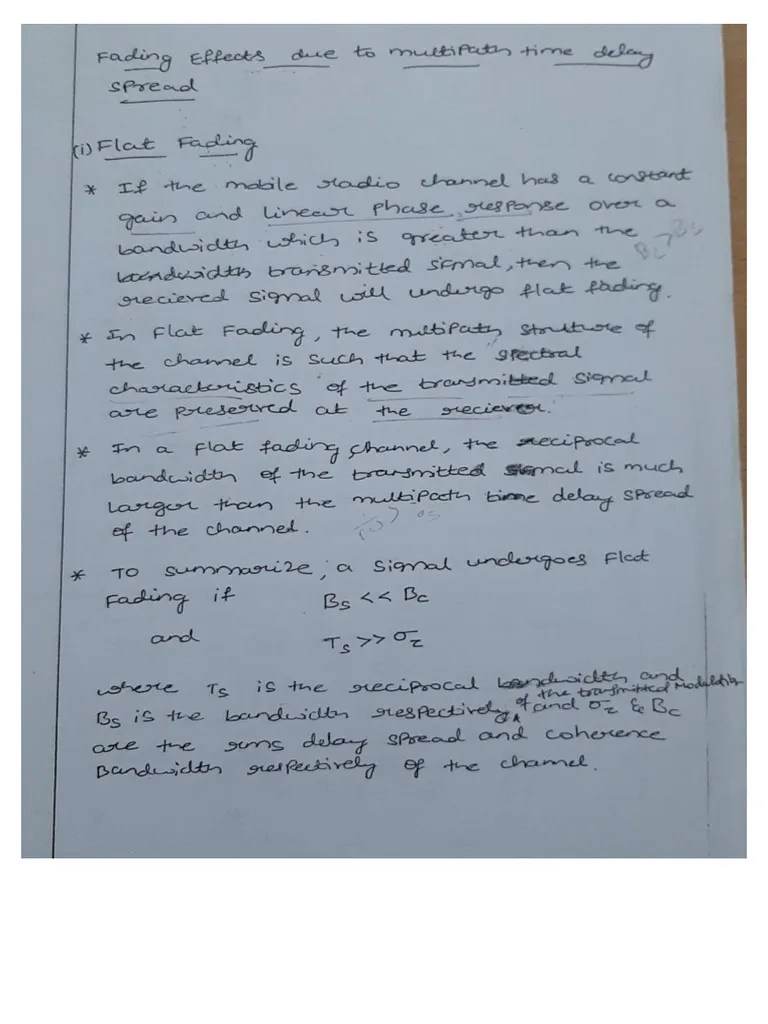 Fading Effects due to multipath time delay
spread
(i) Flat Fading
* If the mobile radio channel has a constant
gain and linear phase response over a
bandwidth which is greater than the
bandwidth transmitted signal, then the
recieved signal will undergo flat fading.
* In Flat Fading, the multipath struture of
the channel is such that the spectral
characteristics of the transmitted signal
are preserved at the reciever.
* In a flat fading channel, the reciprocal
bandwidth of the transmitted signal is much
larger than the multipath time delay spread
of the channel.
* To summarize, a signal undergoes Flat
Fading if Bs << Bc
and Ts >> σz
where Ts is the reciprocal bandwidth and
of the transmitted modulation
Bs is the bandwidth respectively, and σz & Bc
are the rms delay spread and coherence
Bandwidth respectively of the channel.